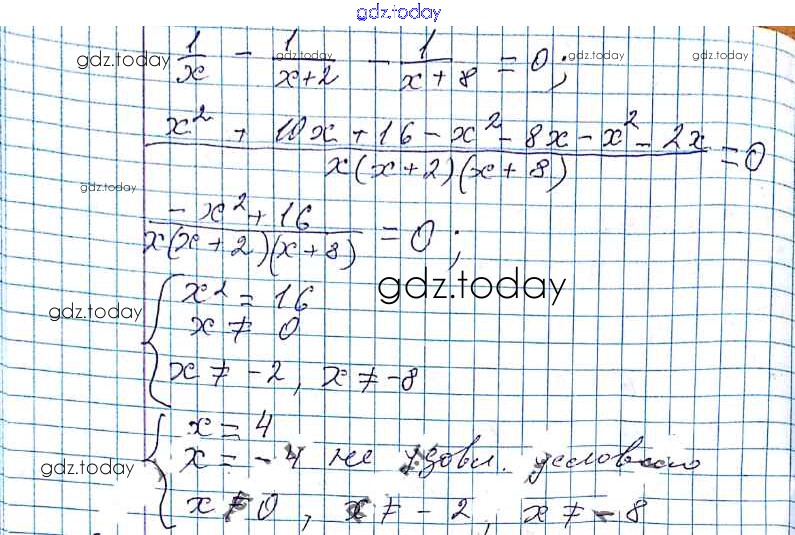 gdz.today
gdz.today 1/x - 1/(x+2) - 1/(x+8) = 0; gdz.today gdz.today gdz.today
(x² + 10x + 16 - x² - 8x - x² - 2x)/(x(x+2)(x+8)) = 0
gdz.today
(-x² + 16)/(x(x+2)(x+8)) = 0;
gdz.today
{ x² = 16
gdz.today x ≠ 0
x ≠ -2, x ≠ -8
{ x = 4
gdz.today x = -4 не удовл. условию
x ≠ 0, x ≠ -2, x ≠ -8